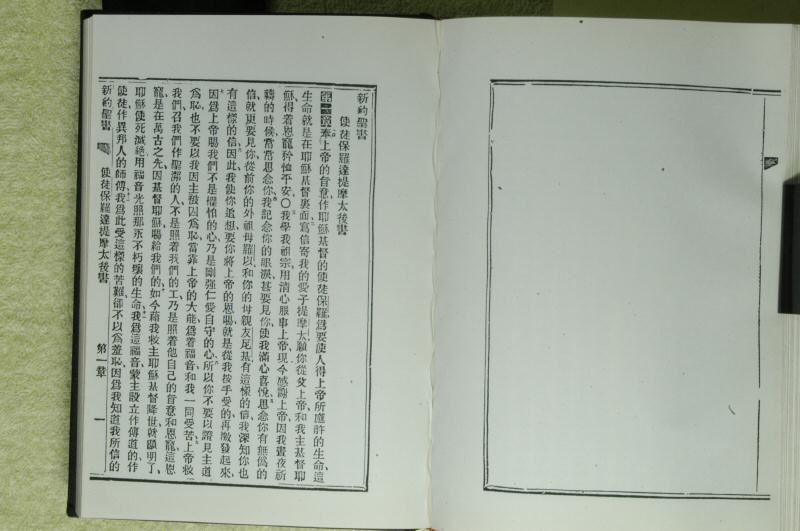 新約聖書
使徒保羅達提摩太後書
第一章奉上帝的旨意、作耶穌基督的使徒保羅、爲要使人得上帝所應許的生命、這
生命就是在耶穌基督裏面、寫信寄我的愛子提摩太、願你從父上帝、和我主基督耶
穌得着恩寵矜恤平安、〇我學我祖宗用清心服事上帝、現今感謝上帝、因我晝夜祈
禱的時候、常常思念你、我記念你的眼淚、甚要見你、使我滿心喜悅、思念你有無僞的
信、就更要見你、從前你的外祖母羅以和你的母親友尼基有這樣的信、我深知你也
有這樣的信、因此我使你追想、要你將上帝的恩賜、就是從我按手受的、再激發起來、
因爲上帝賜我們、不是懼怕的心、乃是剛強仁愛自守的心、所以你不要以證見主道
爲恥、也不要以我因主被囚爲恥、當靠上帝的大能、爲着福音和我一同受苦、上帝救
我們、召我們作聖潔的人、不是照着我們的工、乃是照着他自己的旨意和恩寵、這恩
寵是在萬古之先、因基督耶穌賜給我們的、如今藉我救主耶穌基督降世、就顯明了、
耶穌使死滅絕、用福音光照那永不朽壞的生命、我爲這福音蒙主設立作傳道的、作
使徒、作異邦人的師傅、我爲此受這樣的苦難、卻不以爲羞恥、因爲我知道我所信的
新約聖書 使徒保羅達提摩太後書 第一章 一